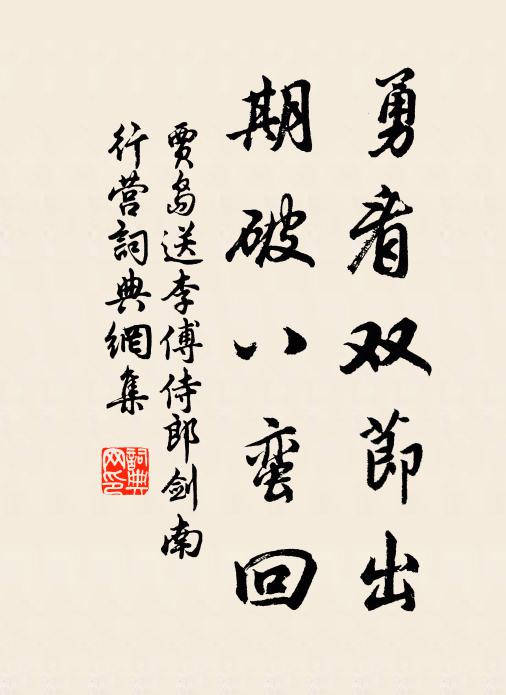 勇看双節出
期破八蛮回
賈島送李傅侍郎剑南
行营詞典網集
詞典网印